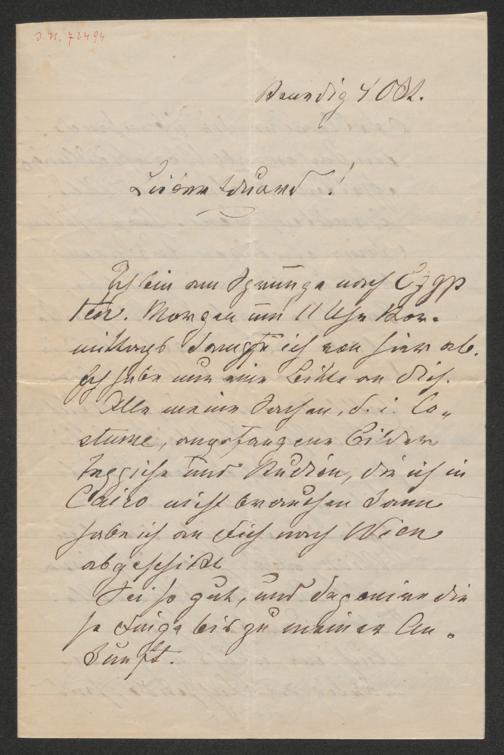 J. N. 72494
Venedig 4 Okt.
Lieber Eduard!
Ich bin am Sprunge nach Egyp
ten. Morgen um 11 Uhr Vor-
mittags dampfe ich von hier ab.
Ich habe nur eine Bitte an Dich.
Alle meine Sachen, d. i. Co-
stume, angefangene Bilder
Teppiche und Studien, die ich in
Cairo nicht brauchen kann
habe ich an Dich nach Wien
abgeschickt
Sei so gut, und deponire die
se Dinge bis zu meiner An-
kunft.